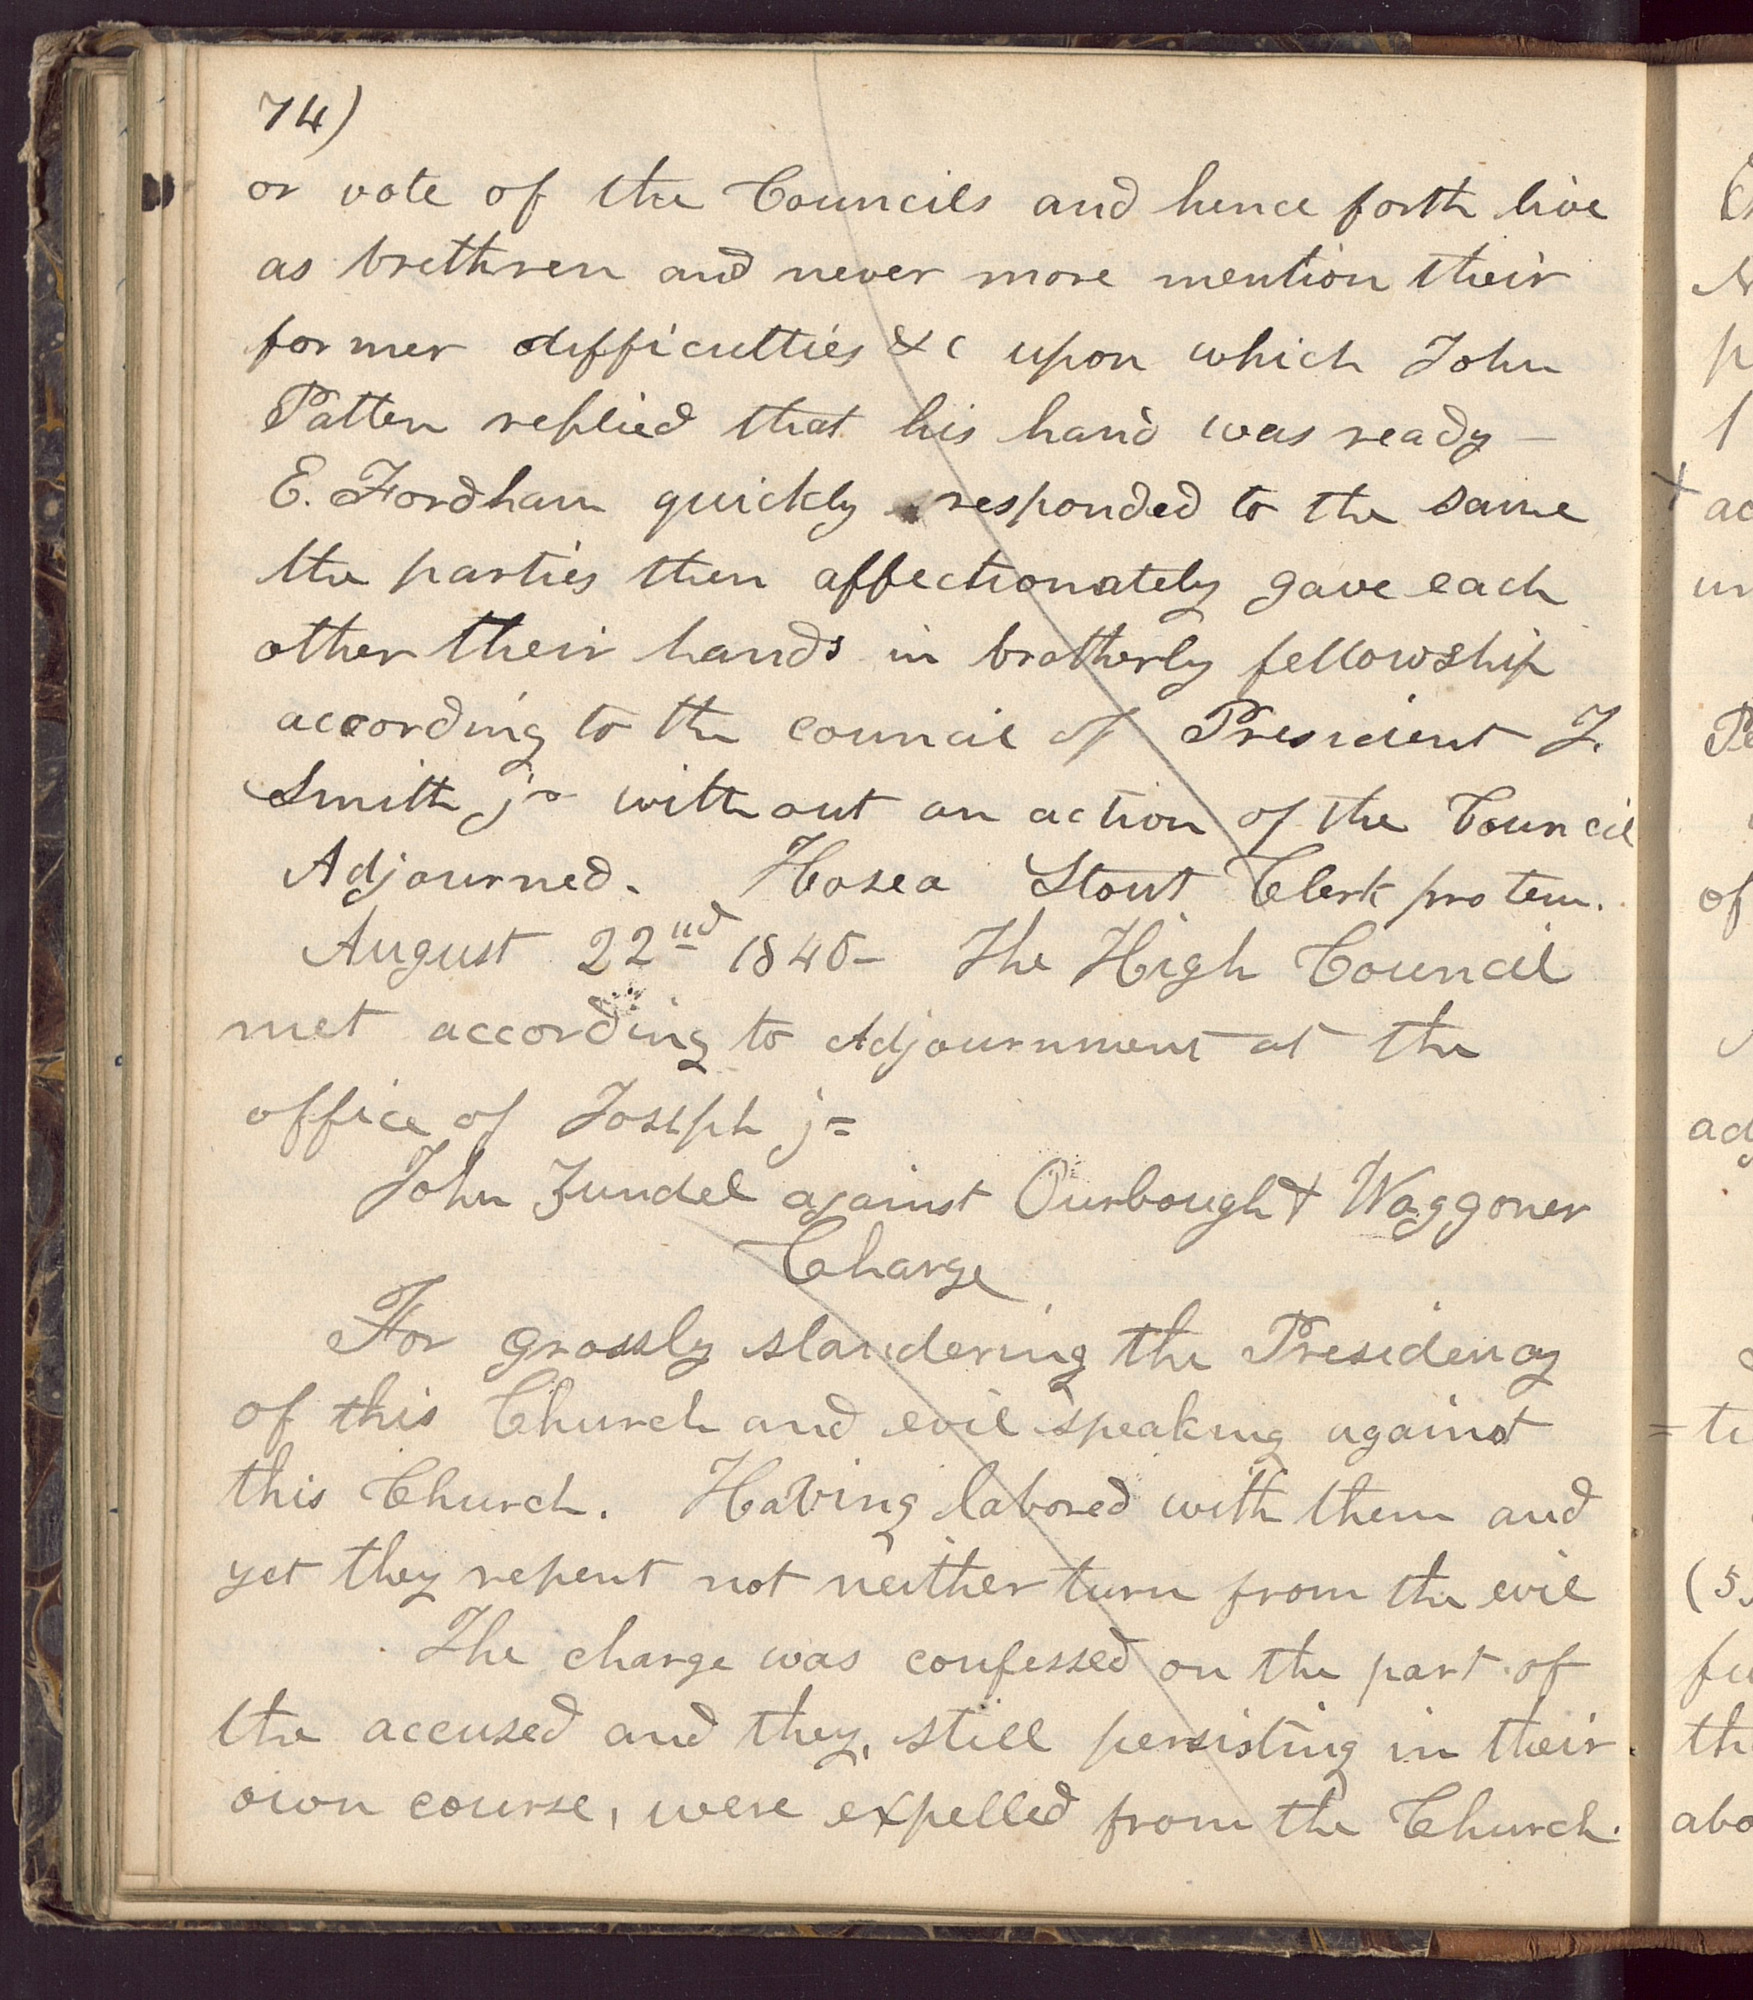 74)
or vote of the Councils and hence forth live
as brethren and never more mention their
former difficulties &c upon which John
Patten replied that his hand was ready –
E. Fordham quickly responded to the same
the parties then affectionately gave each
other their hands in brotherly fellowship
according to the council of President J.
Smith jr without an action of the Council
Adjourned. Hosea Stout Clerk pro tem.
August 22nd 1840– The High Council
met according to Adjournment at the
office of Joseph j=
John Zundel against Ourbough & Waggoner
Charge
For grossly slandering the Presidency
of this Church and evil speaking against
this Church. Having labored with them and
yet they repent not neither turn from the evil
The charge was confessed on the part of
the accused and they, still persisting in their
own course, were expelled from the Church.